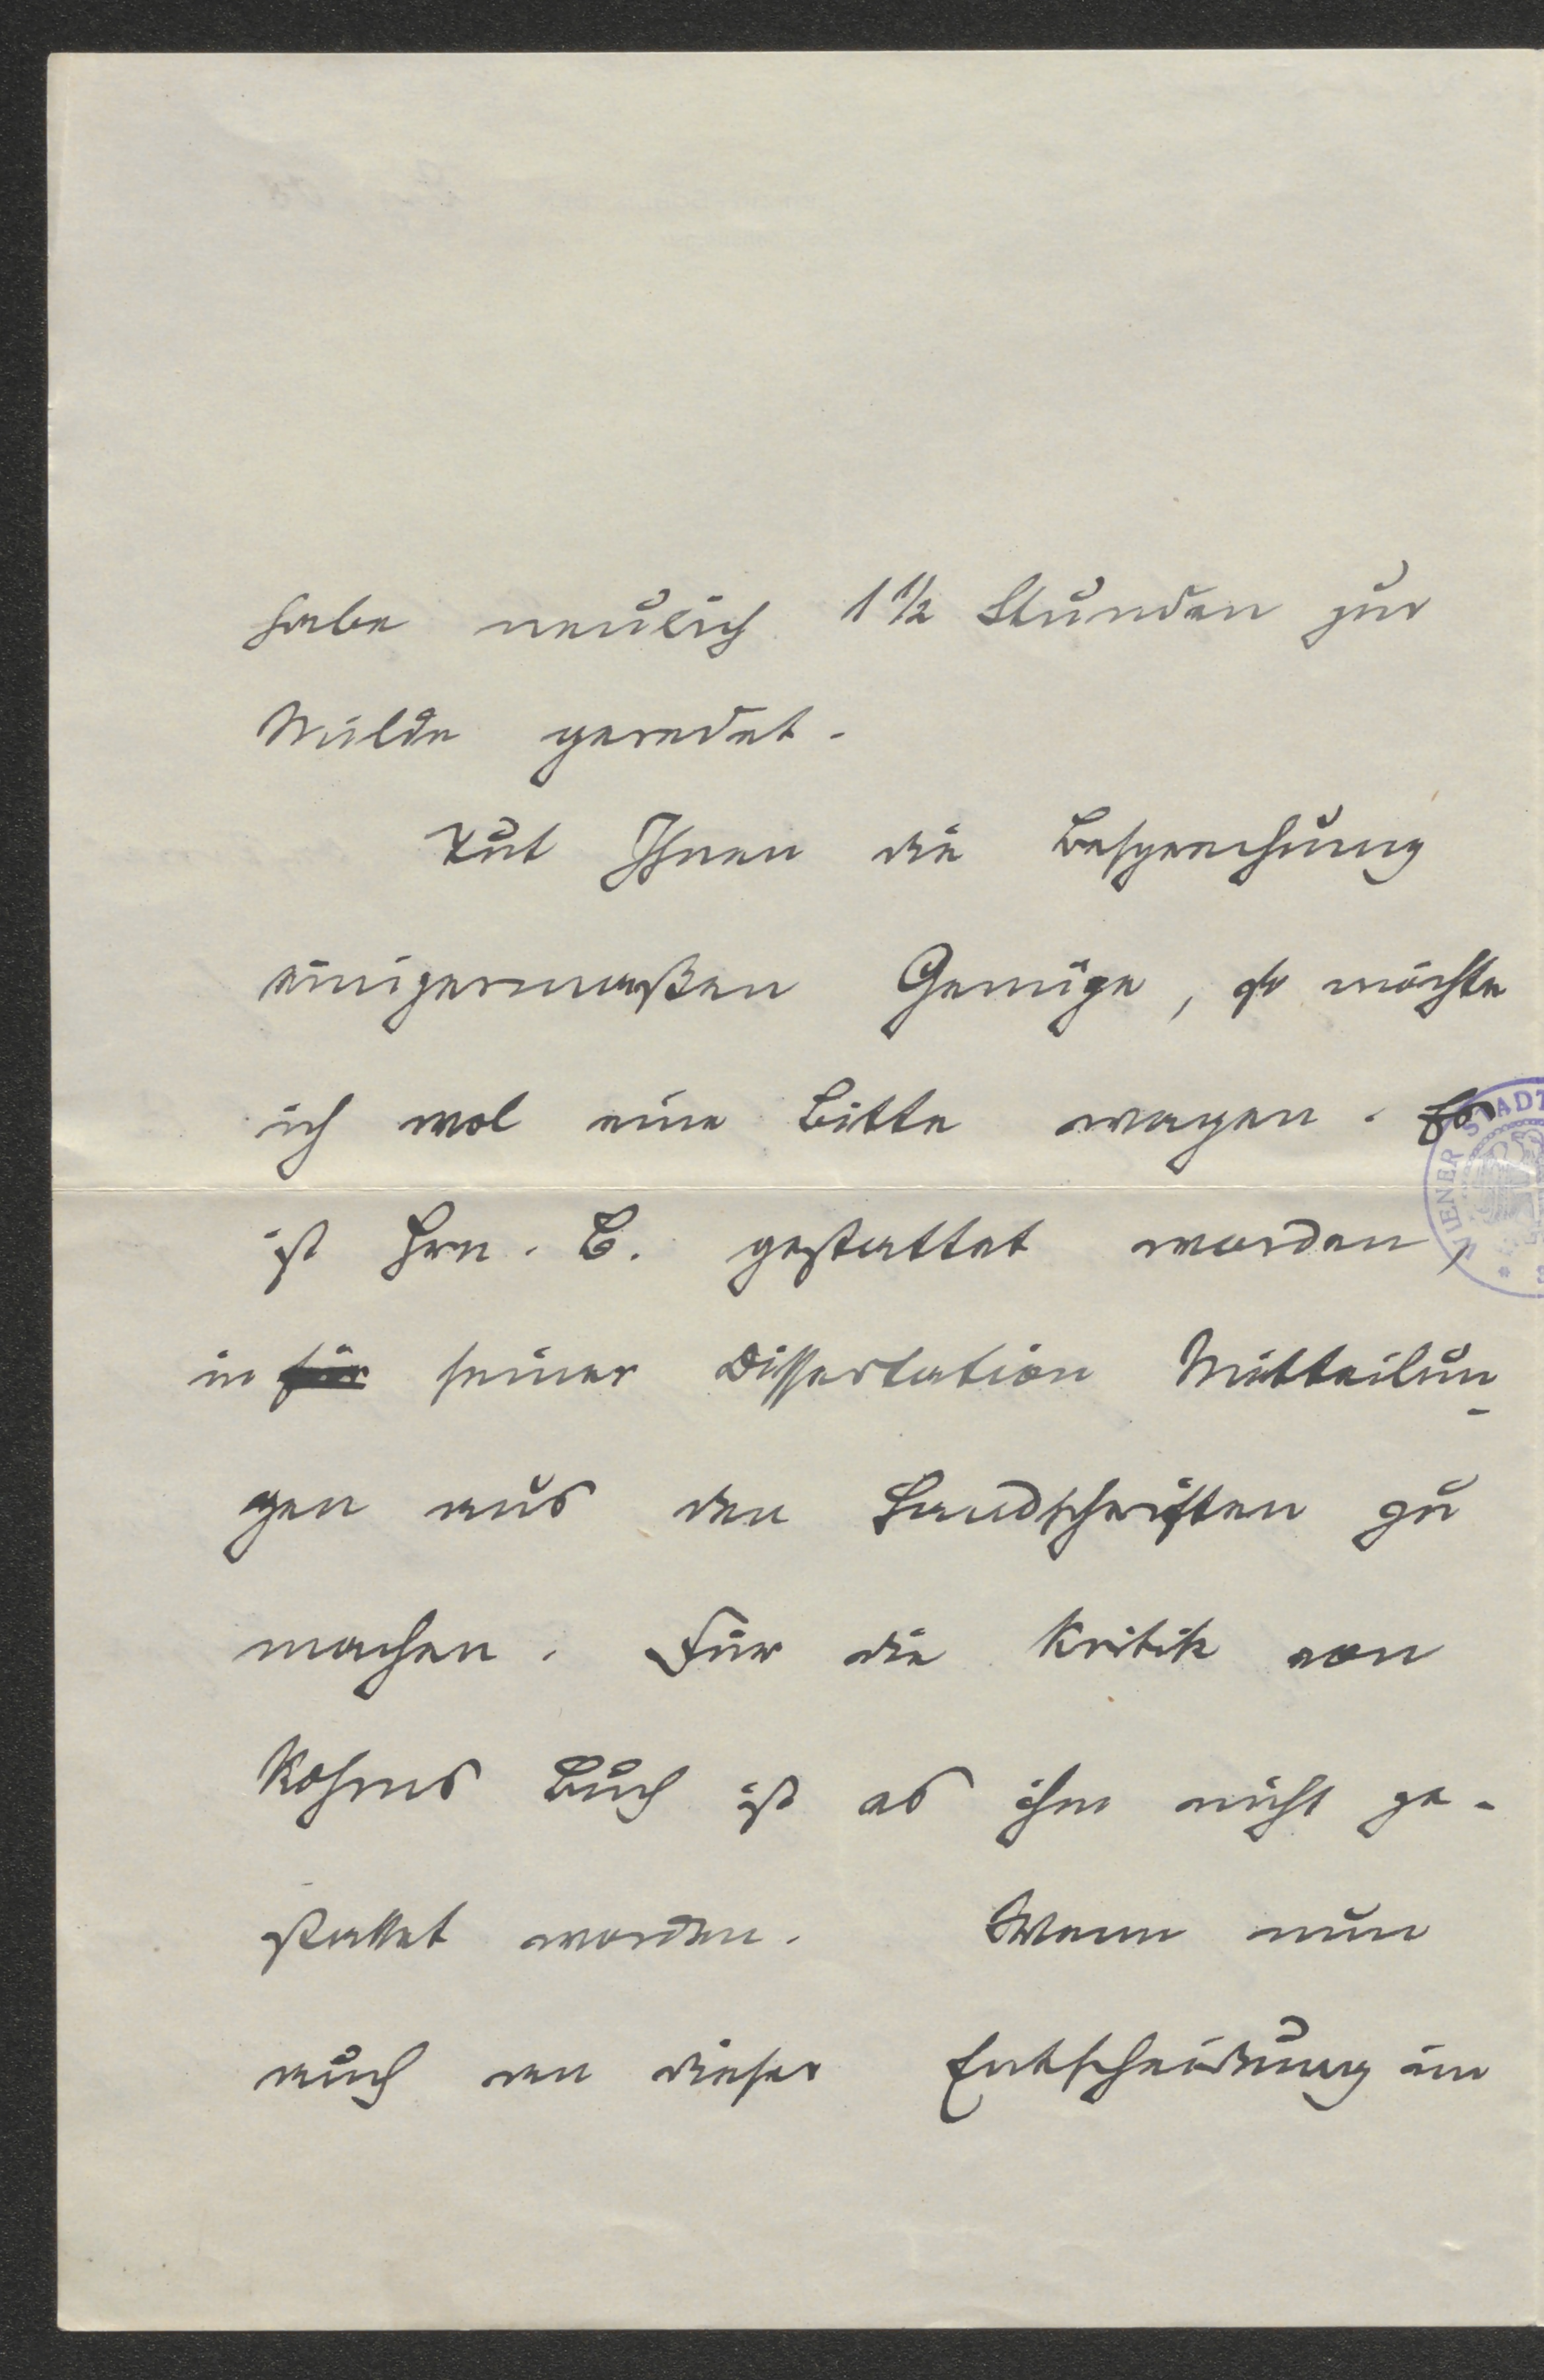 habe neulich 1 1/2 Stunden zur
Milde geredet.
Tut Ihnen die Besprechung
einigermaßen Genüge, so möchte
ich wol eine Bitte wagen. Es
ist Hrn. C. gestattet worden,
in für seiner Dissertation Mitteilun-
gen aus den Handschriften zu
machen. Für die Kritik von
Kohms Buch ist es ihm nicht ge-
stattet worden. Wenn nun
auch an dieser Entscheidung im
WIENER STADT